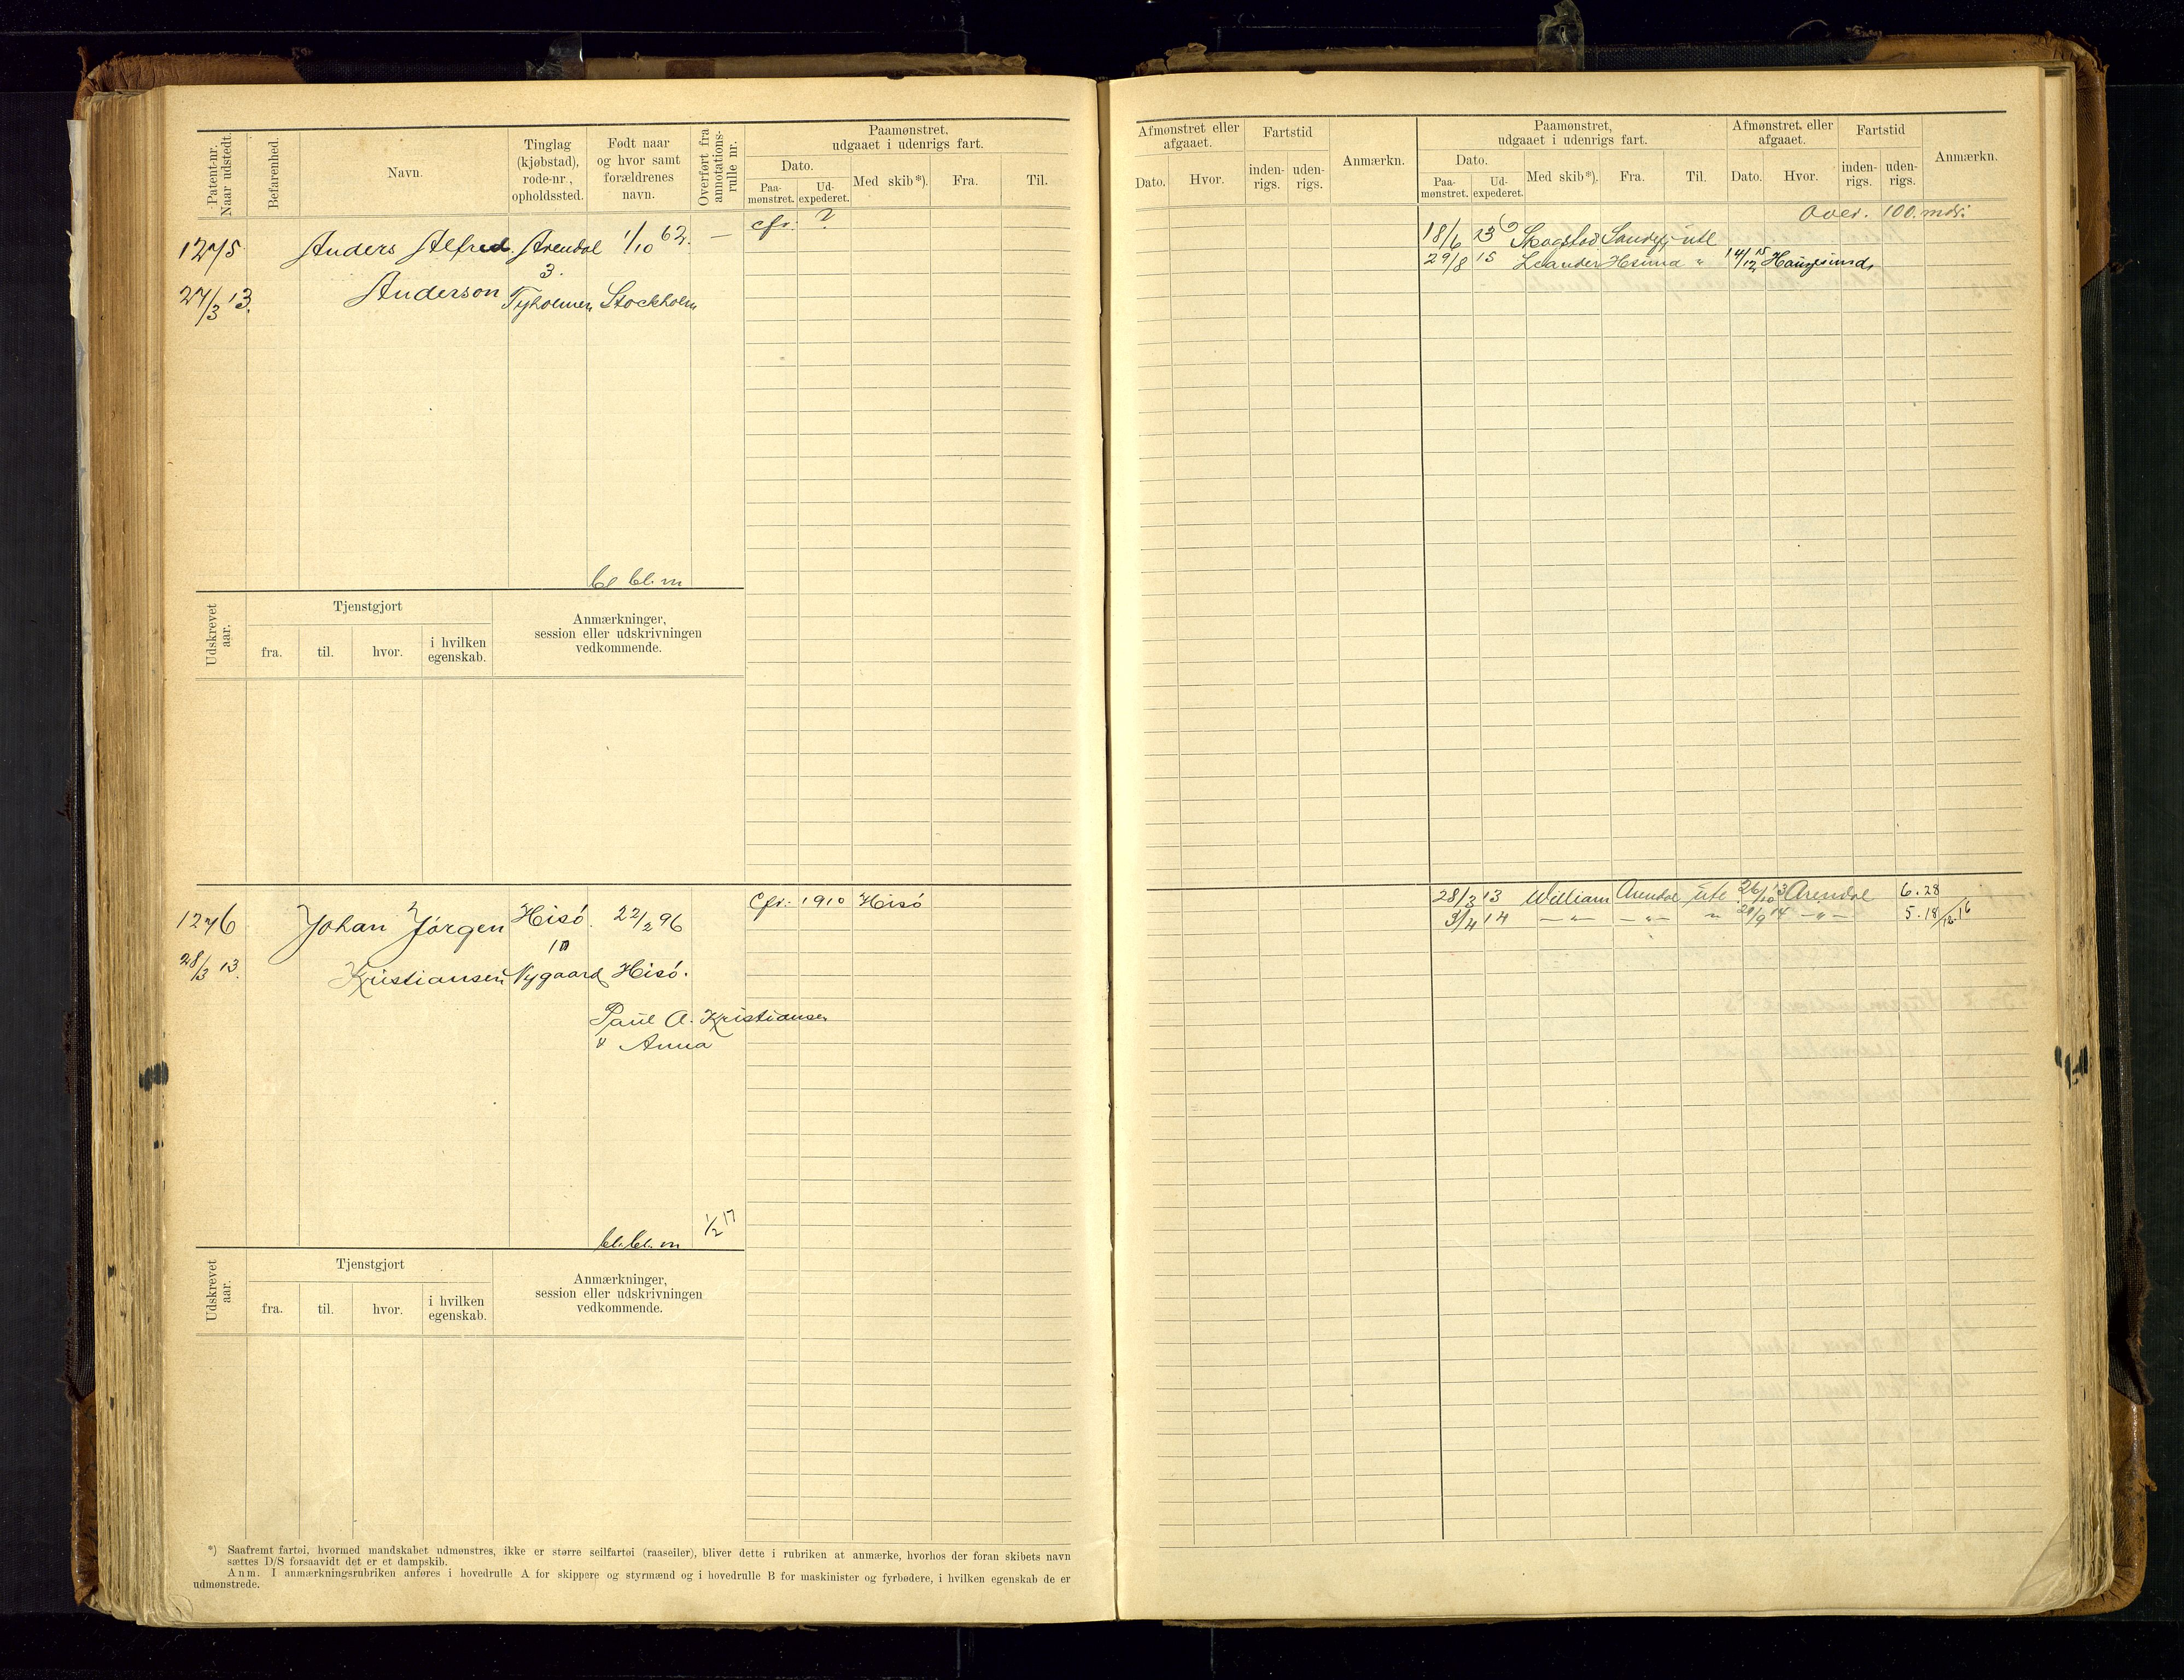 Patent-nr. Naar udstedt.
Befarenhed.
Navn.
Tinglag (kjøbstad), rode-nr., opholdssted.
Født naar og hvor samt forældrenes navn.
Overført fra annotations-rulle nr.
Paamønstret, udgaaet i udenrigs fart.
Dato.
Paa-mønstret.
Ud-expederet.
Med skib*).
Fra.
Til.
Afmønstret eller afgaaet.
Dato.
Hvor.
Fartstid
inden-rigs.
uden-rigs.
Anmærkn.
Paamønstret, udgaaet i udenrigs fart.
Dato.
Paa-mønstret.
Ud-expederet.
Med skib*).
Fra.
Til.
Afmønstret eller afgaaet.
Dato.
Hvor.
Fartstid
inden-rigs.
uden-rigs.
Anmærkn.
cfr: ?
Over. 100. mdr:
1275 Anders Alfred Arendal 1/10 62. —
3.
27/3 13. Anderson Tyholmen Stockholm
18/6 Skogstad utl
29/8 15 Leander " 14/12 15 Haugesund
bl. bl. m
Udskrevet aar.
Tjenstgjort
fra.
til.
hvor.
i hvilken egenskab.
Anmærkninger, session eller udskrivningen vedkommende.
1276 Johan Jörgen Hisö 22/2 96 Cfr: 1910 Hisö
10
28/3 13. Kristiansen Nygaard Hisö.
Paul A. Kristiansen
" Anna
28/3 13 William Arendal utl 26/10 13 Arendal 6.28
3/4 14 —"— —"— " 14 —"— 5.18
bl. bl. m 1/2 17
Udskrevet aar.
Tjenstgjort
fra.
til.
hvor.
i hvilken egenskab.
Anmærkninger, session eller udskrivningen vedkommende.
*) Saafremt fartøi, hvormed mandskabet udmønstres, ikke er større seilfartøi (raaseiler), bliver dette i rubriken at anmærke, hvorhos der foran skibets navn
sættes D/S forsaavidt det er et dampskib.
Anm. I anmærkningsrubriken anføres i hovedrulle A for skippere og styrmænd og i hovedrulle B for maskinister og fyrbødere, i hvilken egenskab de er
udmønstrede.